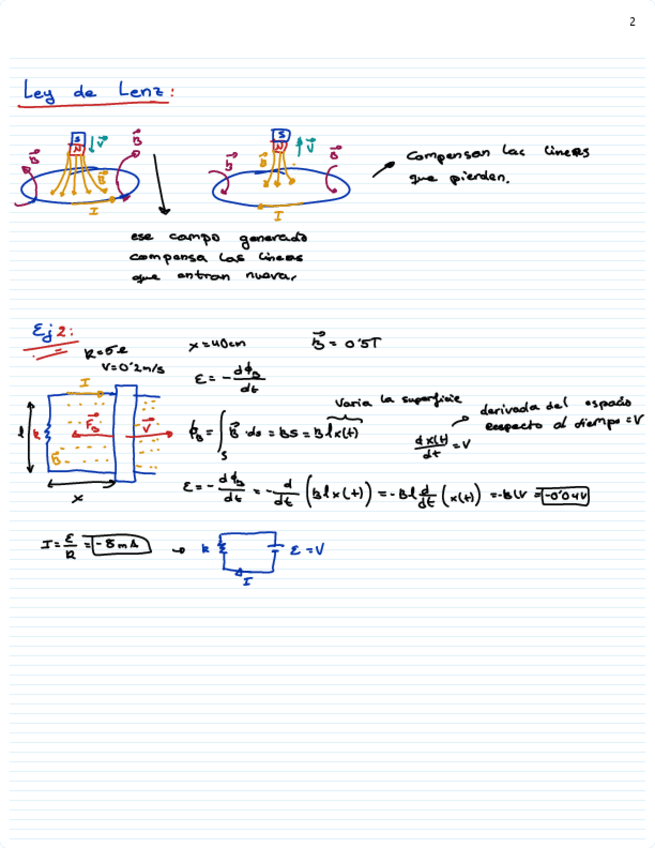 2
Ley de Lenz:
S
N
V
B
B
B
I
S
N
V
B
B
B
I
Compensan las lineas
que pierden.
ese campo generado
compensa las lineas
que entran nuevas
Ej 2:
V=0'2m/s
x=40cm
B = 0'5T
ε = - dΦB/dt
I
l
R
FB
V
B
x
ΦB = ∫S B ds = BS = Blx(t)
Varia la superficie
dx(t)/dt = V
derivada del espacio
respecto al tiempo = V
ε = - dΦB/dt = - d/dt (Blx(t)) = -Bl d/dt (x(t)) = -BlV = -0'04V
I = ε/R = -8mA → R
ε = V
I